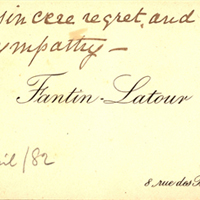 sincere regret and
sympathy —
Fantin-Latour
il/82
8, rue des B